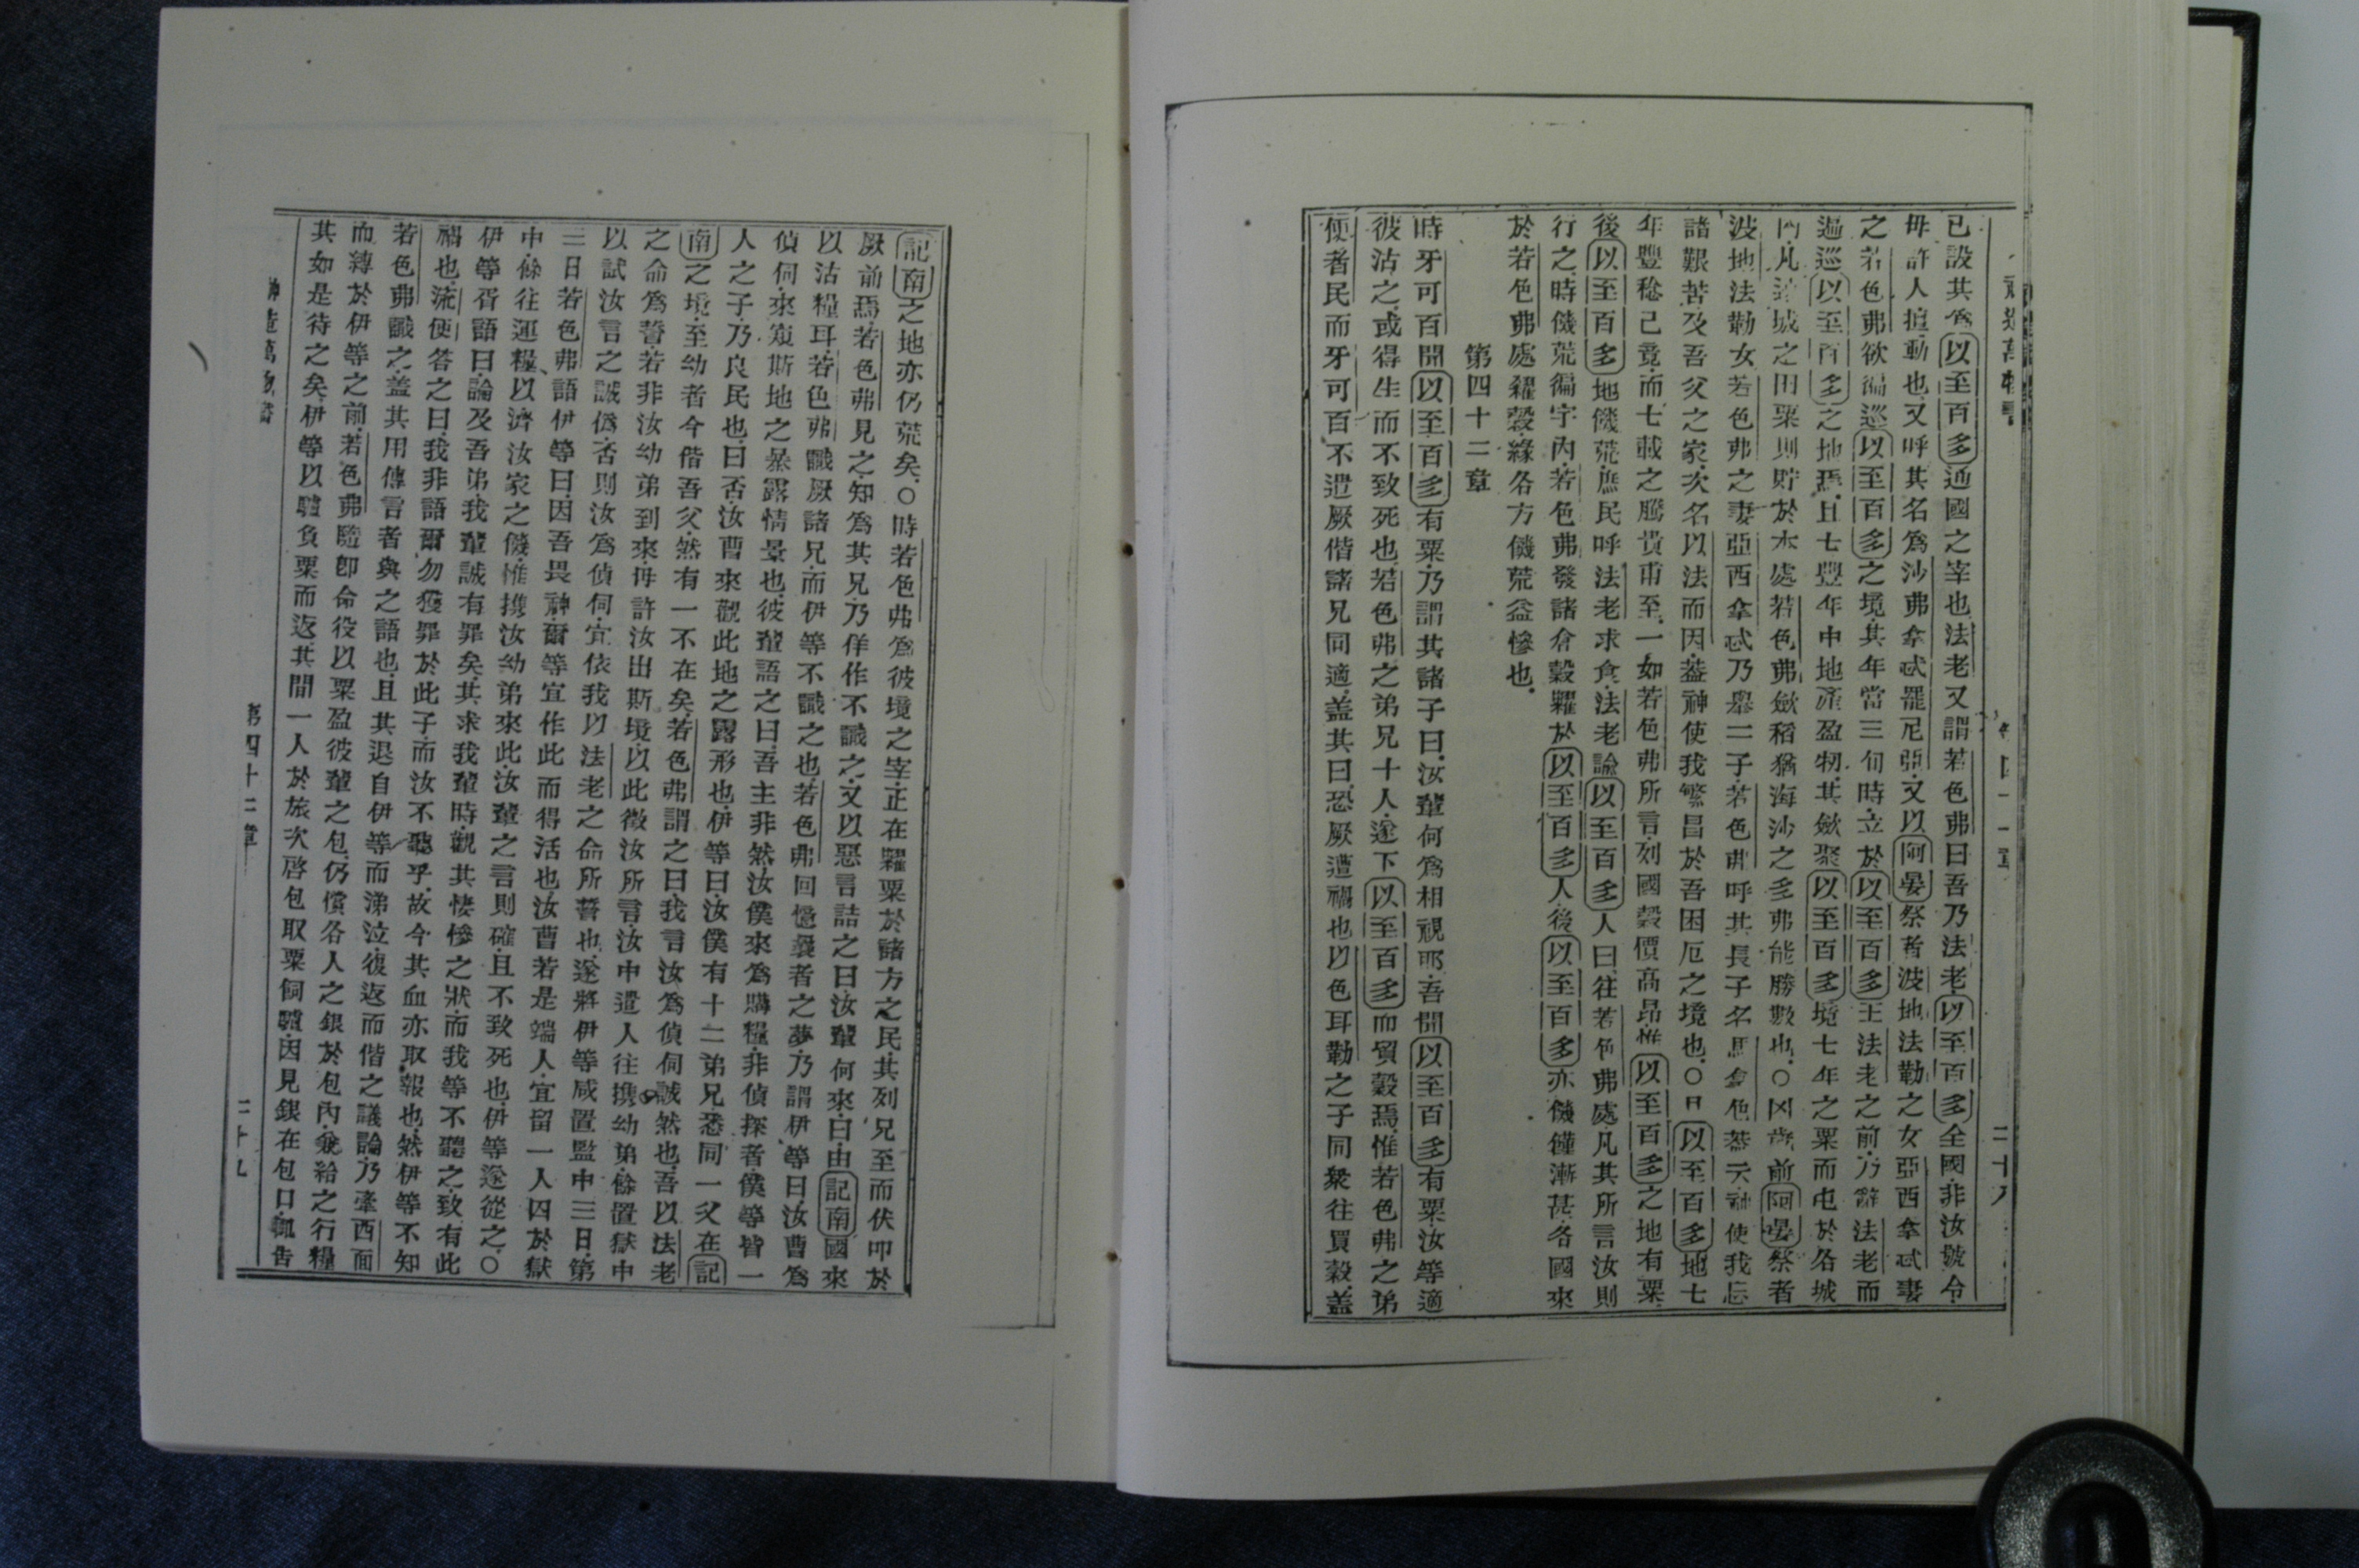 已設其爲以至百多通國之宰也法老又謂若色弗曰吾乃法老以至百多全國非汝號令
毋許人擅動也又呼其名爲沙弗拿忒罷尼亞又以阿晏祭者波地法勒之女亞西拿忒妻
之若色弗欲徧巡以至百多之境其年當三旬時立於以至百多王法老之前乃辭法老而
遍巡以至百多之地焉且七豐年中地產盈物其歛聚以至百多境七年之粟而屯於各城
內凡城之田粟則貯於本處若色弗歛稻猶海沙之多弗能勝數也〇凶歲前阿晏祭者
波地法勒女若色弗之妻亞西拿忒乃舉二子若色弗呼其長子名馬拿色葢云神使我忘
諸艱苦及吾父之家次名以法而因葢神使我繁昌於吾困厄之境也〇以至百多地七
年豐稔已竟而七載之騰貴甫至一如若色弗所言列國穀價高昂惟以至百多之地有粟
後以至百多地饑荒庶民呼法老求食法老諭以至百多人曰往若色弗處凡其所言汝則
行之時饑荒徧宇內若色弗發諸倉穀糶於以至百多人後以至百多亦饑饉漸甚各國來
於若色弗處糴穀緣各方饑荒益慘也
第四十二章
時牙可百聞以至百多有粟乃謂其諸子曰汝輩何爲相視耶吾聞以至百多有粟汝等適
彼沽之或得生而不致死也若色弗之弟兄十人遂下以至百多而貿穀焉惟若色弗之弟
便者民而牙可百不遣厥偕諸兄同適葢其曰恐厥遭禍也以色耳勒之子同衆往買穀葢
記南之地亦仍荒矣〇時若色弗爲彼境之宰正在糶粟於諸方之民其列兄至而伏叩於
厥前焉若色弗見之知爲其兄乃佯作不識之又以惡言詰之曰汝輩何來曰由記南國來
以沽糧耳若色弗識厥諸兄而伊等不識之也若色弗回憶曩者之夢乃謂伊等曰汝曹爲
偵伺來窺斯地之暴露情景也彼輩語之曰吾主非然汝僕來爲購糧非偵探者僕等皆一
人之子乃良民也曰否汝曹來觀此地之露形也伊等曰汝僕有十二弟兄悉同一父在記
南之境至幼者今偕吾父然有一不在矣若色弗謂之曰我言汝爲偵伺誠然也吾以法老
之命爲誓若非汝幼弟到來毋許汝出斯境以此徵汝所言汝中遣人往携幼弟餘置獄中
以試汝言之誠僞否則汝爲偵伺宜依我以法老之命所誓也遂將伊等咸置監中三日第
三日若色弗語伊等曰因吾畏神爾等宜作此而得活也汝曹若是端人宜留一人囚於獄
中餘往運糧以濟汝家之饑惟携汝幼弟來此汝輩之言則確且不致死也伊等遂從之〇
伊等胥語曰論及吾弟我輩誠有罪矣其求我輩時觀其悽慘之狀而我等不聽之致有此
禍也流便答之曰我非語爾勿獲罪於此子而汝不聽乎故今其血亦取報也然伊等不知
若色弗識之葢其用傳言者與之語也且其退自伊等而涕泣復返而偕之議論乃牽西面
而縛於伊等之前若色弗隨卽命役以粟盈彼輩之包仍償各人之銀於包內兼給之行糧
其如是待之矣伊等以驢負粟而返其間一人於旅次啓包取粟飼驢因見銀在包口輒告
神造萬物書　第四十二章　二十九